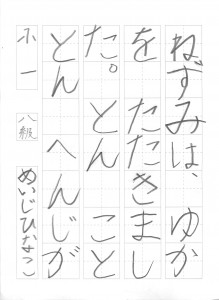 ねずみは、ゆか
を　たたきまし
た。とん　こと
とん　へんじが
小一　八級　めいじひなこ